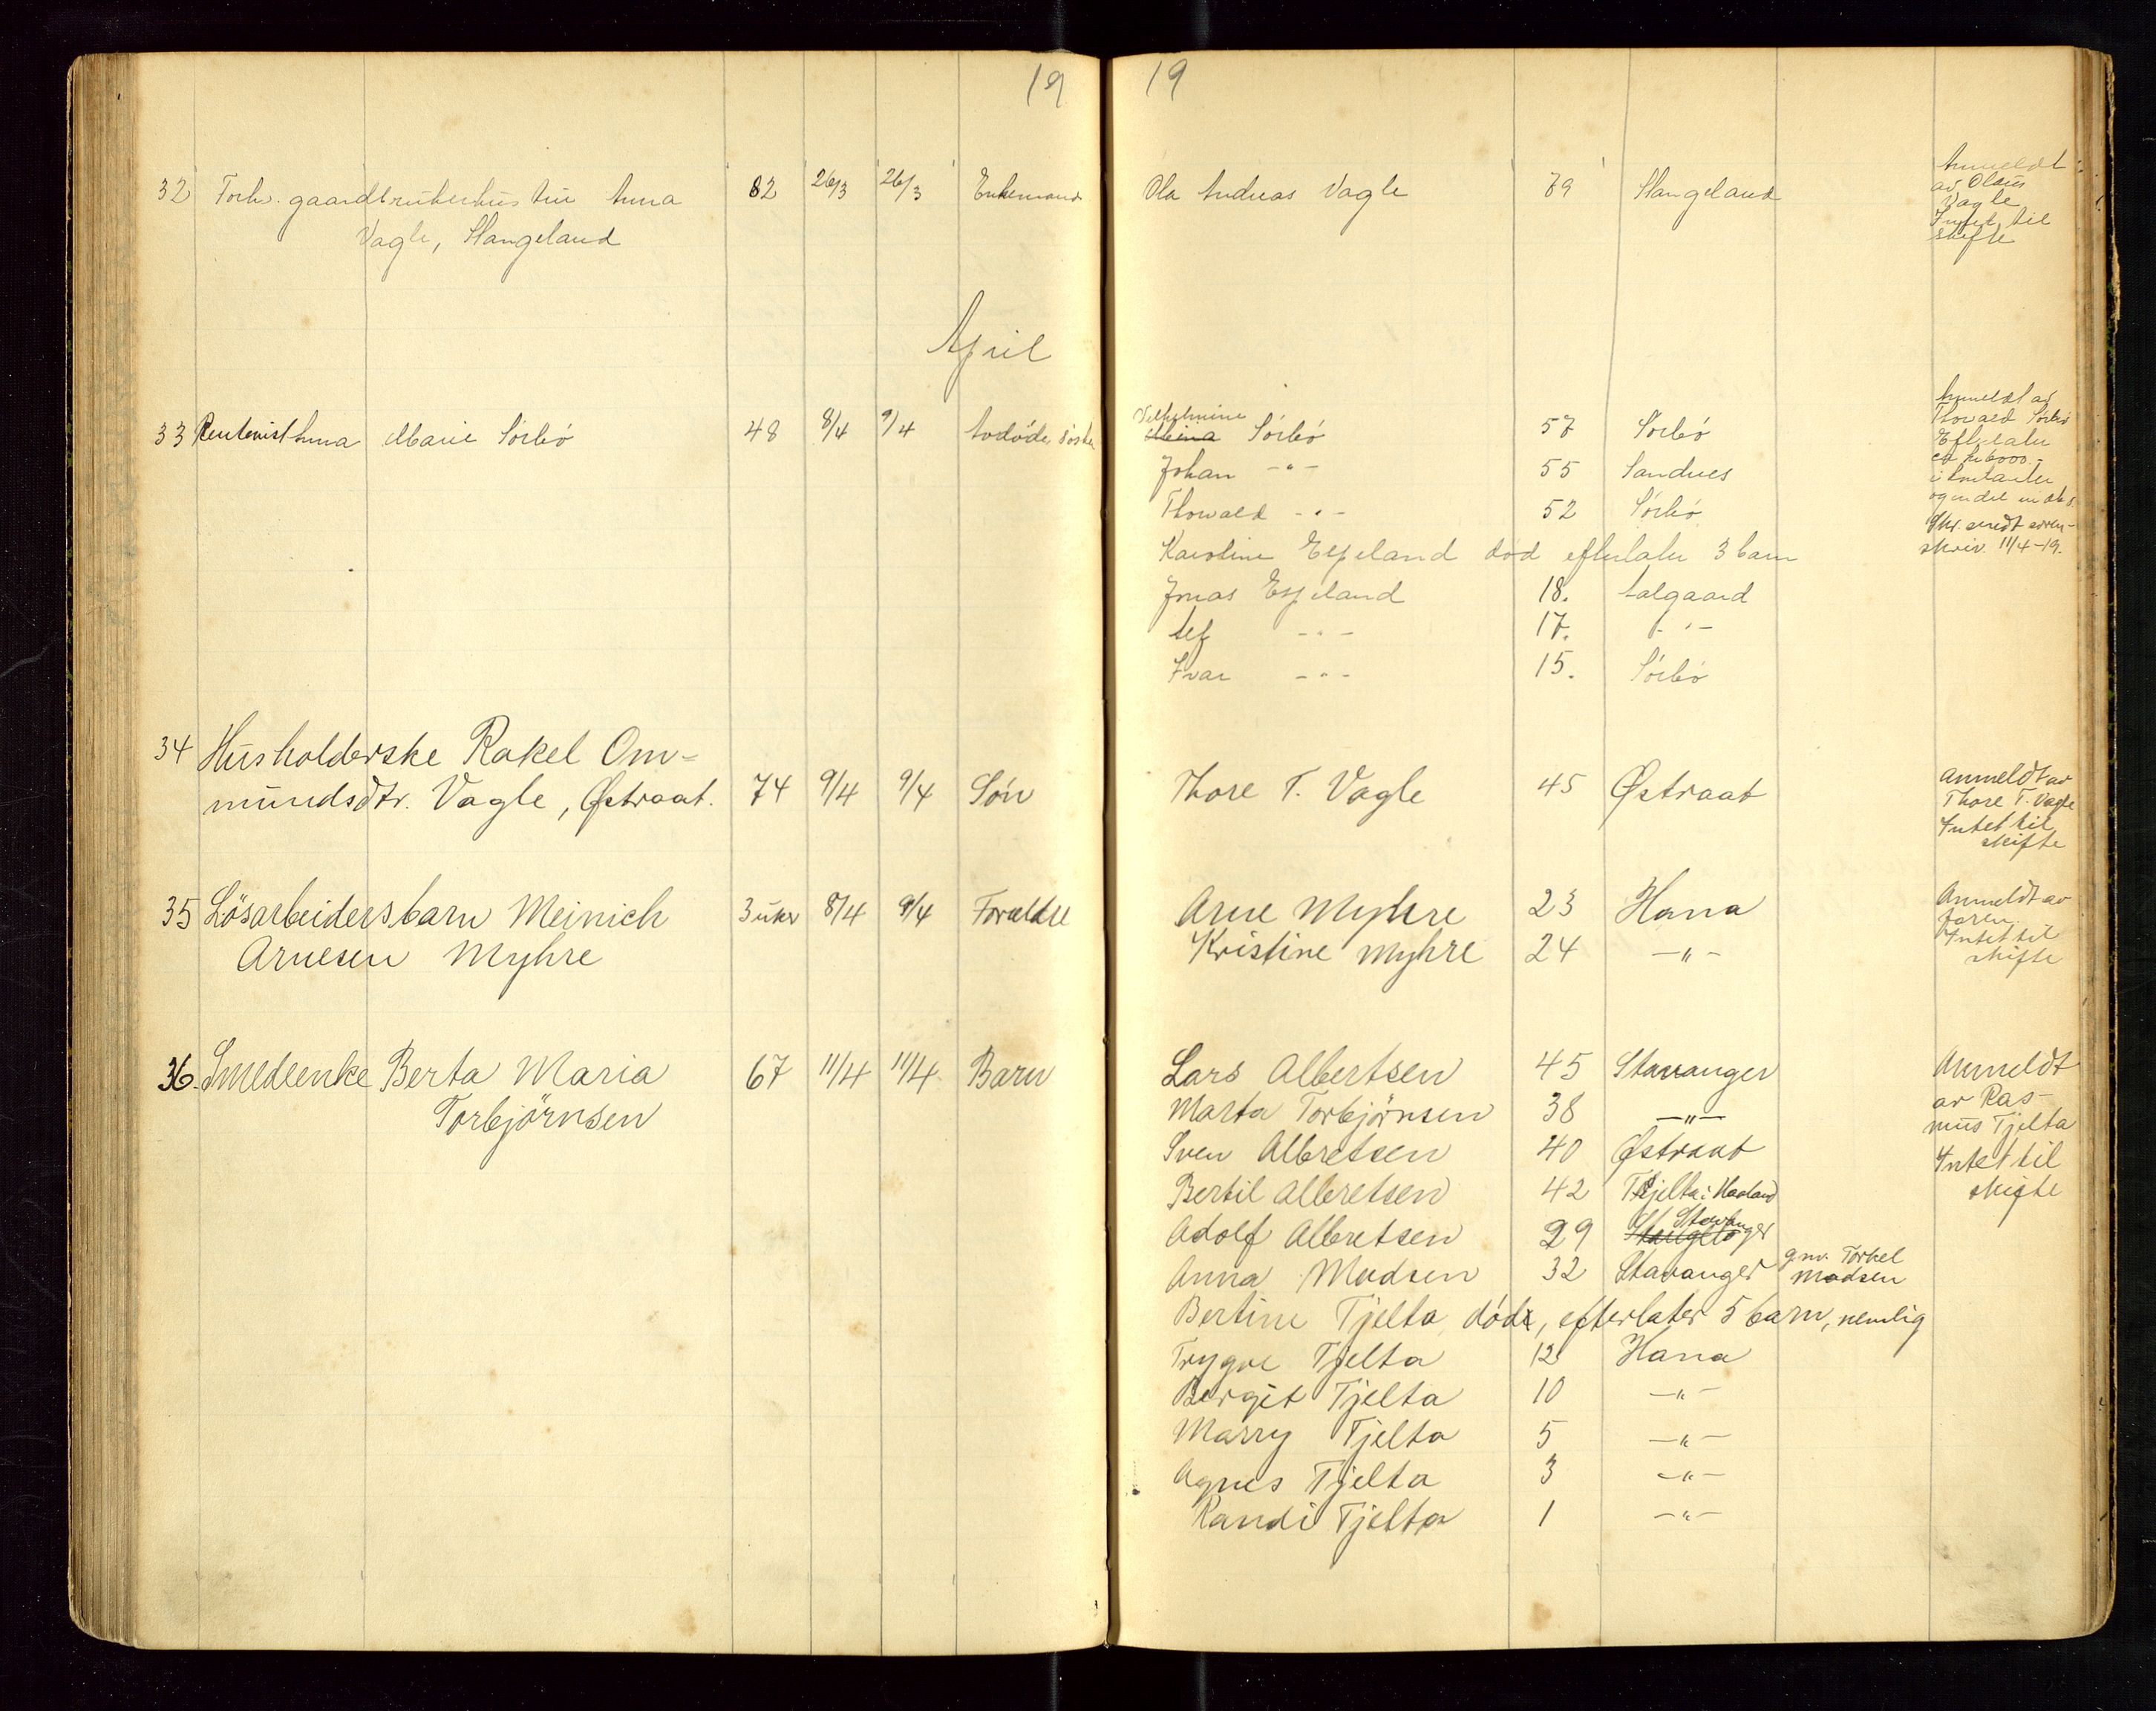 19
19
32 Forhv. gaardbrukerhustru Anna 82 26/3 26/3 Enkemand Ola Andreas Vagle 79 Stangeland
Vagle, Stangeland
Anmeldt
av Olaus
Vagle
Intet til
skifte
April
33 Rentenist Anna Marie Sörbö 48 8/4 9/4 Avdöde söster
Vilhelmine
Mina Sörbö 57 Sörbö
Johan -"- 55 Sandnes
Thorvald -"- 52 Sörbö
Karoline Espeland död efterlater 3 barn
Jonas Espeland 18. Aalgaard
Alf -"- 17. -"-
Ivar -"- 15. Sörbö
Anmeldt av
Thorvald Sörbö
Efterlater
ca kr 6000.-
i kontanter
og endel
skriv. 11/4-19.
34 Husholderske Rakel Om-
mundsdtr. Vagle, Østraat. 74 9/4 9/4 Sön Thore T. Vagle 45 Østraat
Anmeldt av
Thore T. Vagle
Intet til
skifte
35 Lösarbeidersbarn Meinich 3 uker 8/4 9/4 Forældre Arne Myhre 23 Hana
Arnesen Myhre Kristine Myhre 24 -"-
Anmeldt av
faren.
Intet til
skifte
36. Smedenke Berta Maria 67 11/4 11/4 Barn Lars Albertsen 45 Stavanger
Torbjörnsen Marta Torbjörnsen 38 -"-
Sven Albretsen 40 Østraat
Bertil Albretsen 42 Tjelta i Haaland
Adolf Albretsen 29 Stavanger
Anna Madsen 32 Stavanger gm. Torkel
Madsen
Bertine Tjelta, död, efterlater 5 barn, nemlig
Trygve Tjelta 12 Hana
Bergit Tjelta 10 -"-
Marry Tjelta 5 -"-
Agnes Tjelta 3 -"-
Randi Tjelta 1 -"-
Anmeldt
av Ras-
mus Tjelta
Intet til
skifte